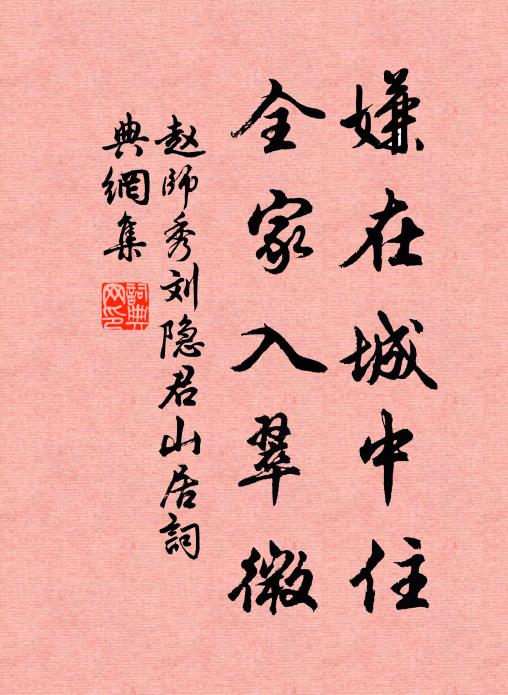 嫌在城中住
全家入翠微
赵師秀刘隐君山居詞
典網集
詞典
网印